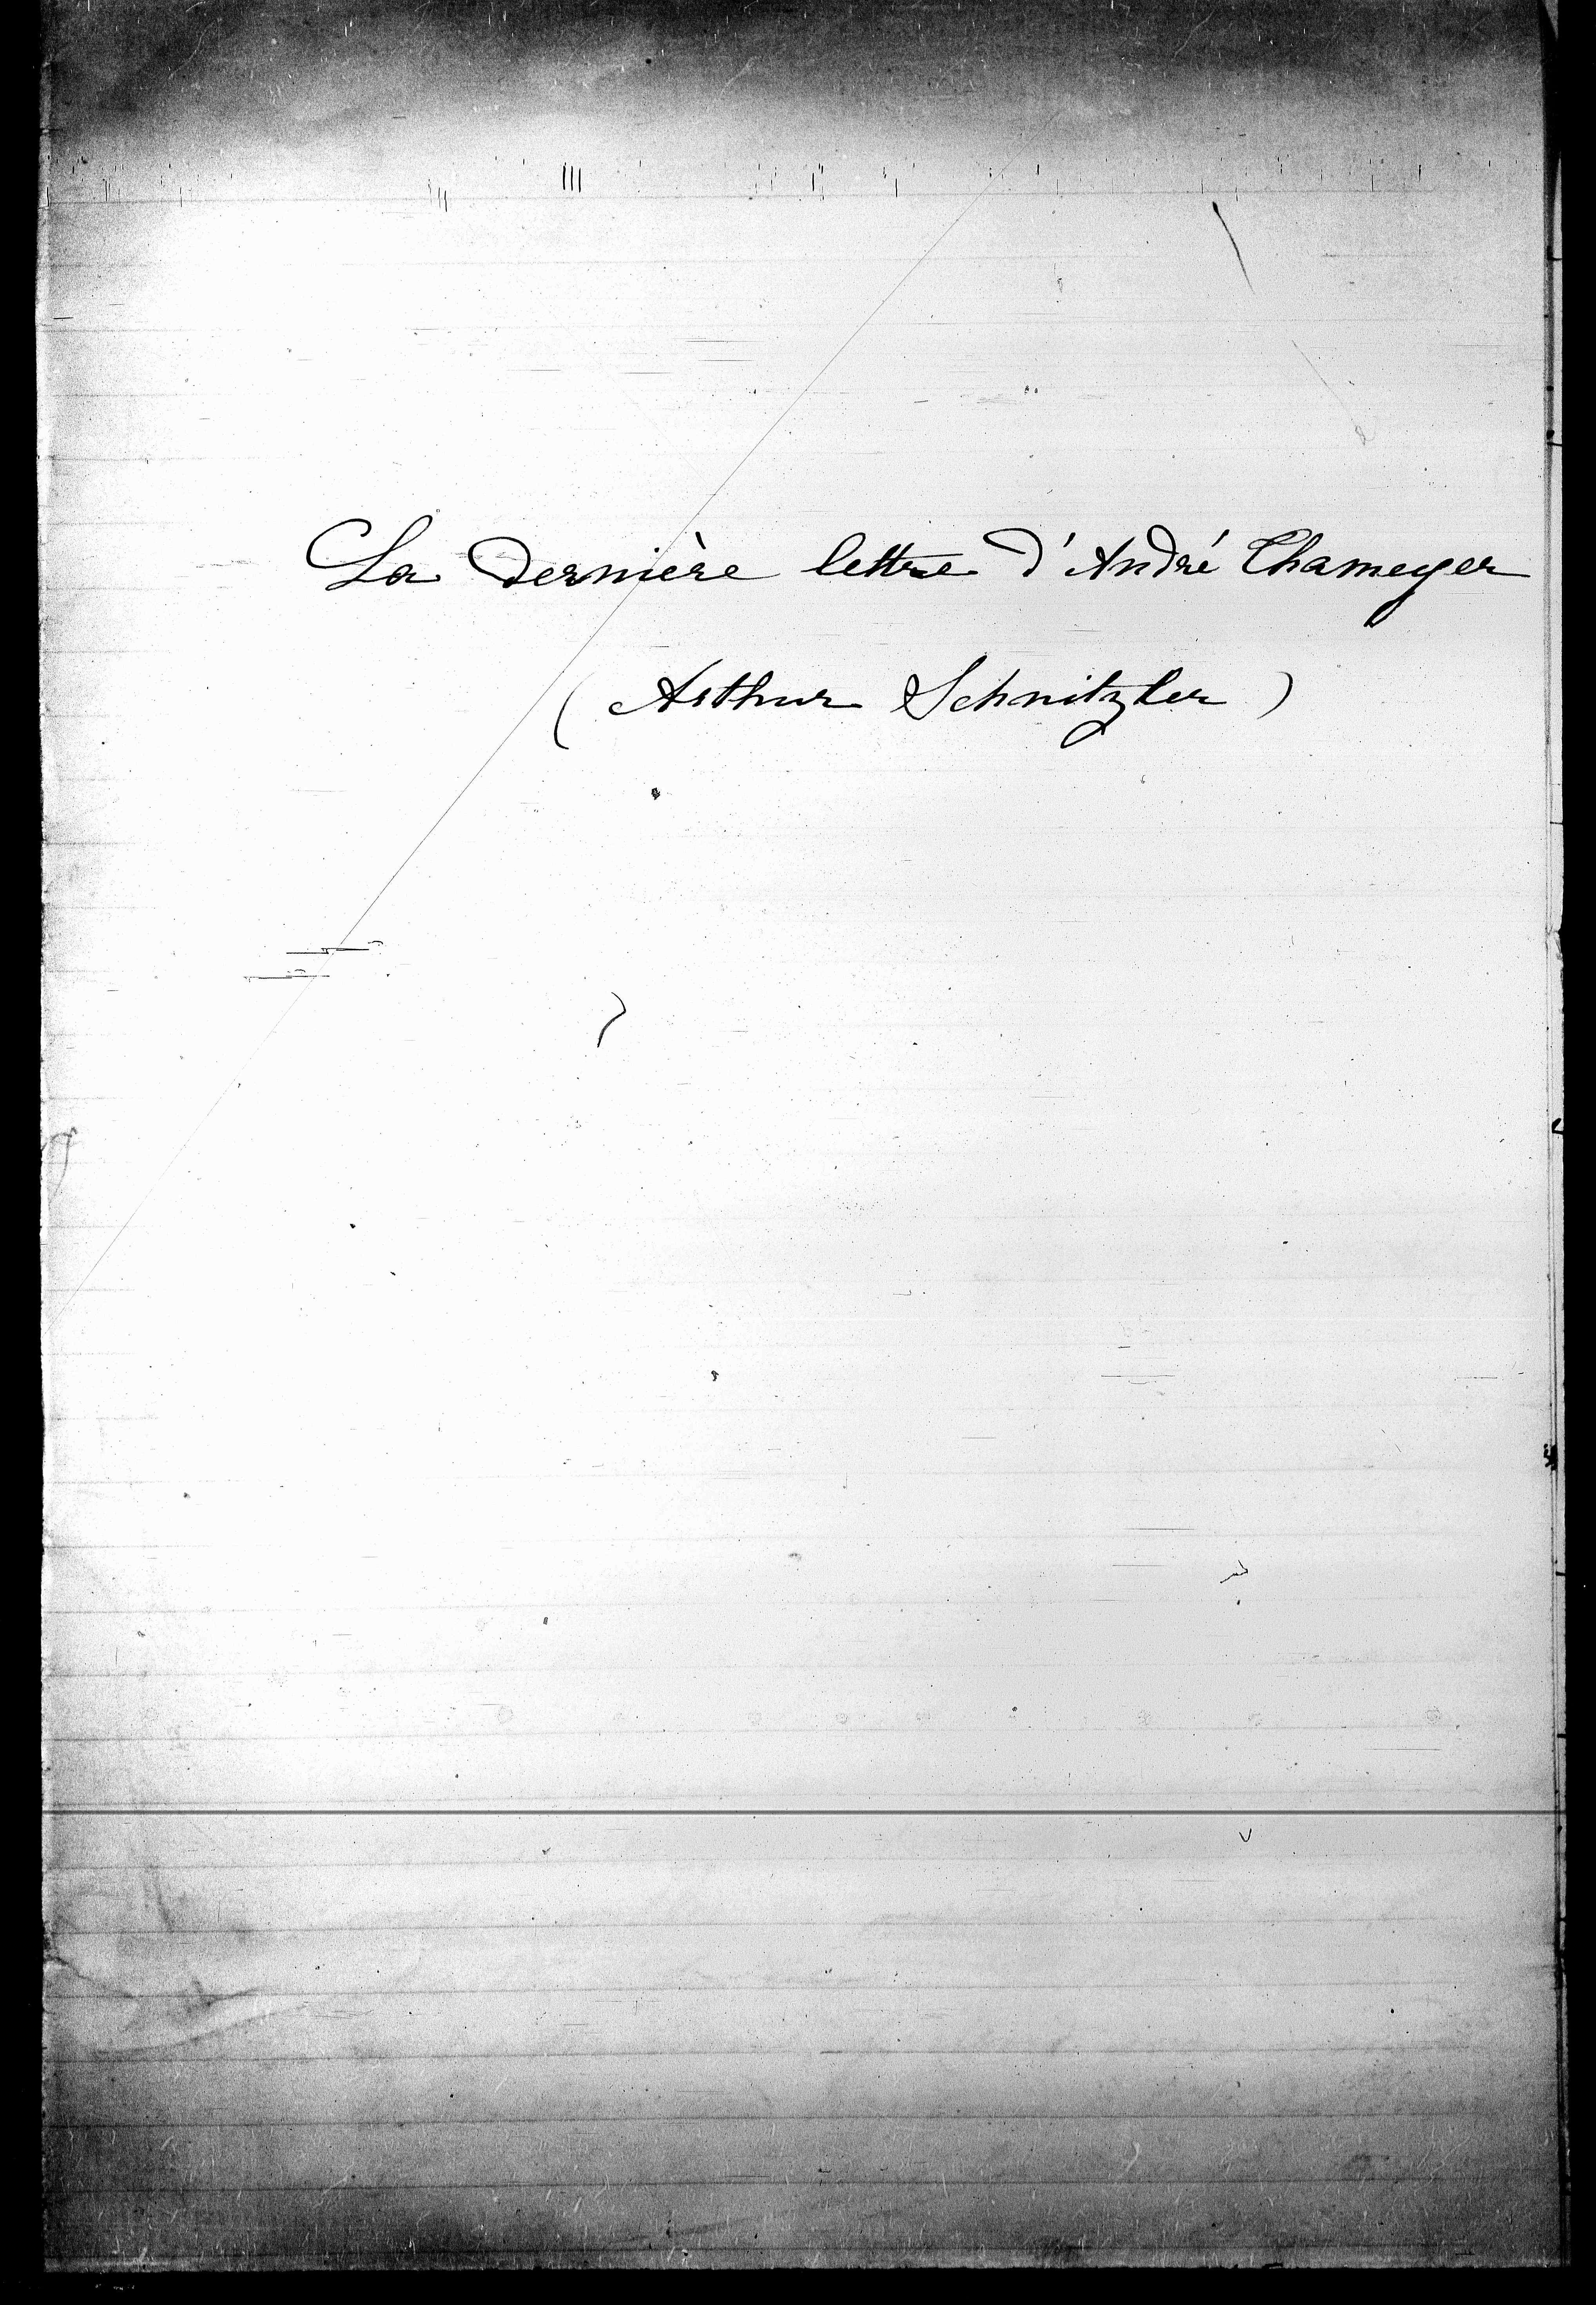 La dernière lettre d'André Thameyer
(Arthur Schnitzler)